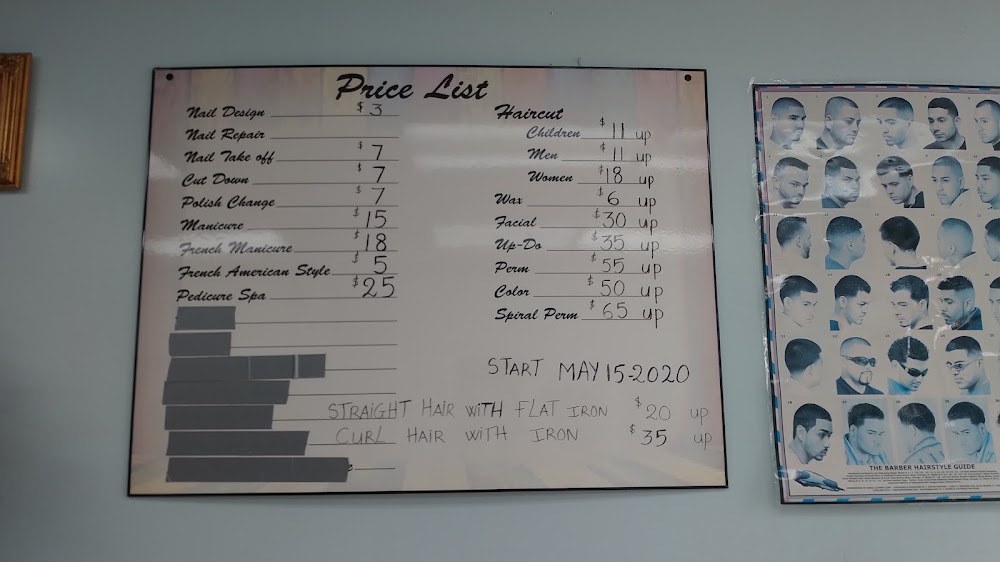 Price List
Nail Design $3
Nail Repair
Nail Take off $7
Cut Down $7
Polish Change $7
Manicure $15
French Manicure $18
French American Style $5
Pedicure Spa $25
Haircut
Children $11 up
Men $11 up
Women $18 up
Wax $6 up
Facial $30 up
Up-Do $35 up
Perm $55 up
Color $50 up
Spiral Perm $65 up
START MAY 15-2020
STRAIGHT HAIR WITH FLAT IRON $20 up
CURL HAIR WITH IRON $35 up
THE BARBER HAIRSTYLE GUIDE